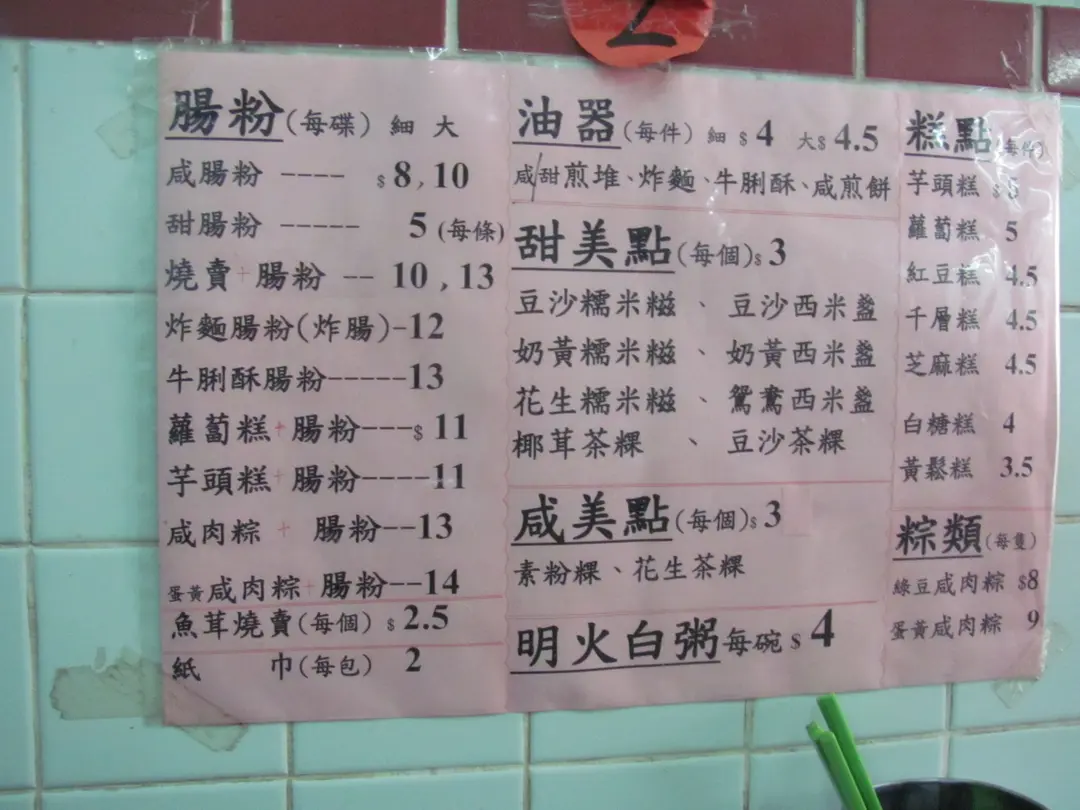 2
腸粉(每碟) 細 大
咸腸粉 ---- $8,10
甜腸粉 ----- 5 (每條)
燒賣+腸粉 -- 10,13
炸麵腸粉(炸腸)-12
牛脷酥腸粉-----13
蘿蔔糕+腸粉---$ 11
芋頭糕+腸粉-----11
咸肉粽 + 腸粉--13
蛋黃咸肉粽+腸粉--14
魚茸燒賣(每個) $ 2.5
紙 巾(每包) 2
油器(每件) 細 $ 4 大$ 4.5
咸/甜煎堆、炸麵、牛脷酥、咸煎餅
甜美點(每個)$ 3
豆沙糯米糍 、 豆沙西米盞
奶黃糯米糍 、 奶黃西米盞
花生糯米糍 、 鴛鴦西米盞
椰茸茶粿 、 豆沙茶粿
咸美點(每個)$ 3
素粉粿、花生茶粿
明火白粥每碗 $ 4
糕點(每件)
芋頭糕 $5
蘿蔔糕 5
紅豆糕 4.5
千層糕 4.5
芝麻糕 4.5
白糖糕 4
黃鬆糕 3.5
粽類(每隻)
綠豆咸肉粽 $8
蛋黃咸肉粽 9